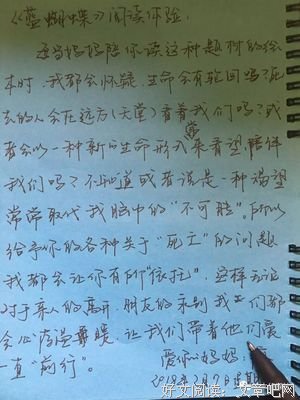 《蓝蝴蝶》阅读体验.
每当妈妈陪你读这种题材的绘
本时,我都会怀疑,生命会有轮回吗?死
去的人会在远方(天堂)看着我们吗?或
者会以一种新的生命形式常来看望,陪伴
我们吗?不知道或者说是一种渴望
常常取代我脑中的“不可能”。所以
给予你的各种关于“死亡”的问题
我都会让你有所“依托”。这样无论
对于亲人的离开、朋友的永别我们都
会心存温暖,让我们带着他们爱
一直“前行”。
爱你的妈妈:
2018年2月7日星期
好文阅读:文章吧网